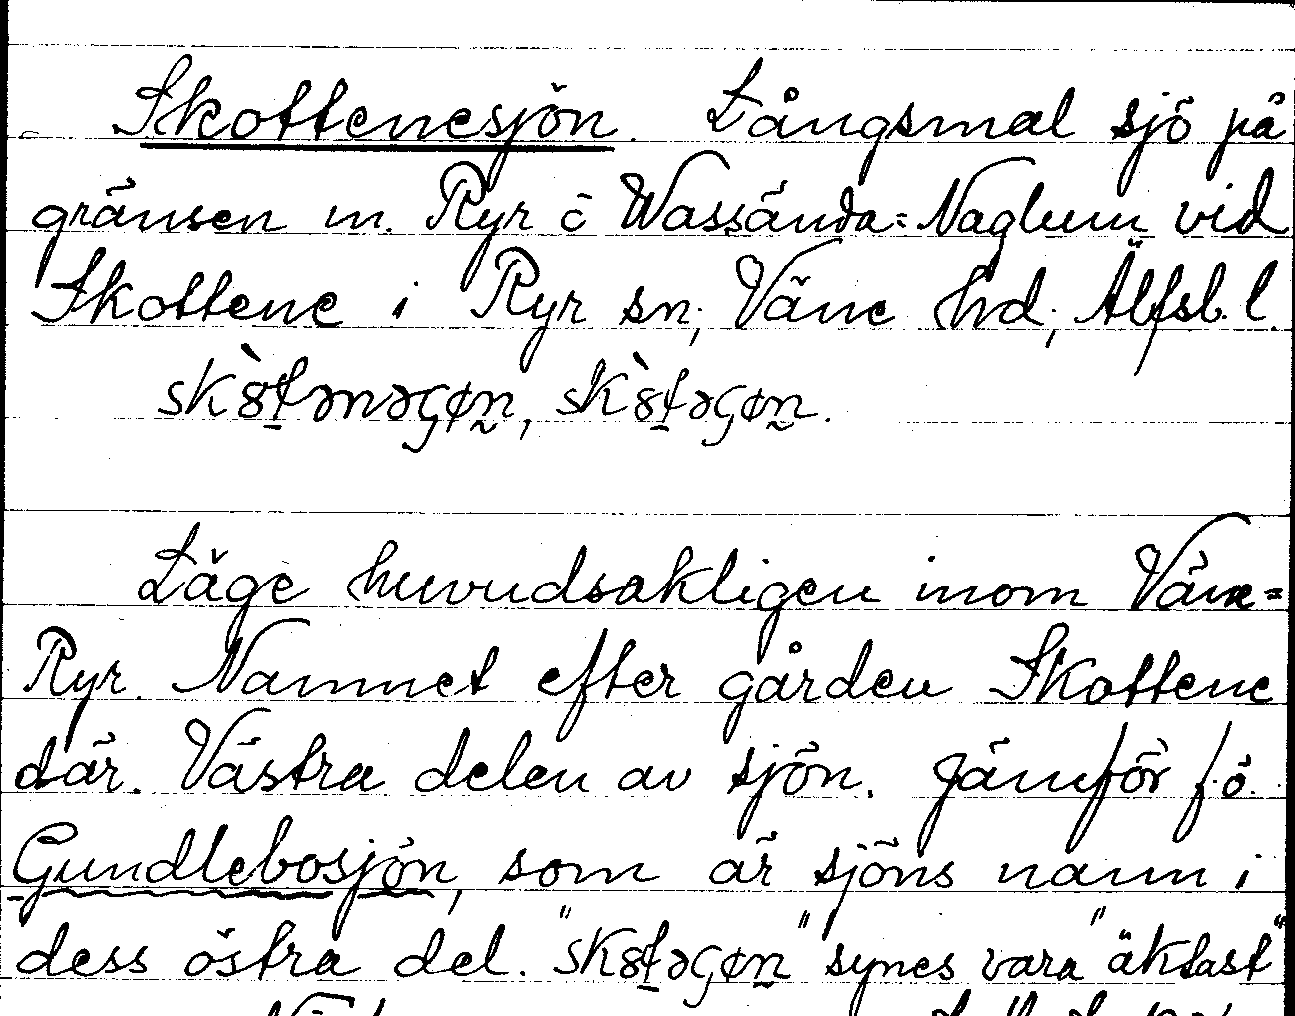 Skottenesjön. Långsmal sjö på
gränsen m. Ryr o Wassända-Naglum vid
Skottene i Ryr sn, Väne hd, Älfsb. l.
skò̀ŧənəʂøn, skò̀ŧəʂøn.
Läge huvudsakligen inom Väne-
Ryr. Namnet efter gården Skottene
där. Västra delen av sjön. Jämför f.ö.
Gundlebosjön, som är sjöns namn i
dess östra del. "sk8ŧəʂøn" synes vara "äktast"